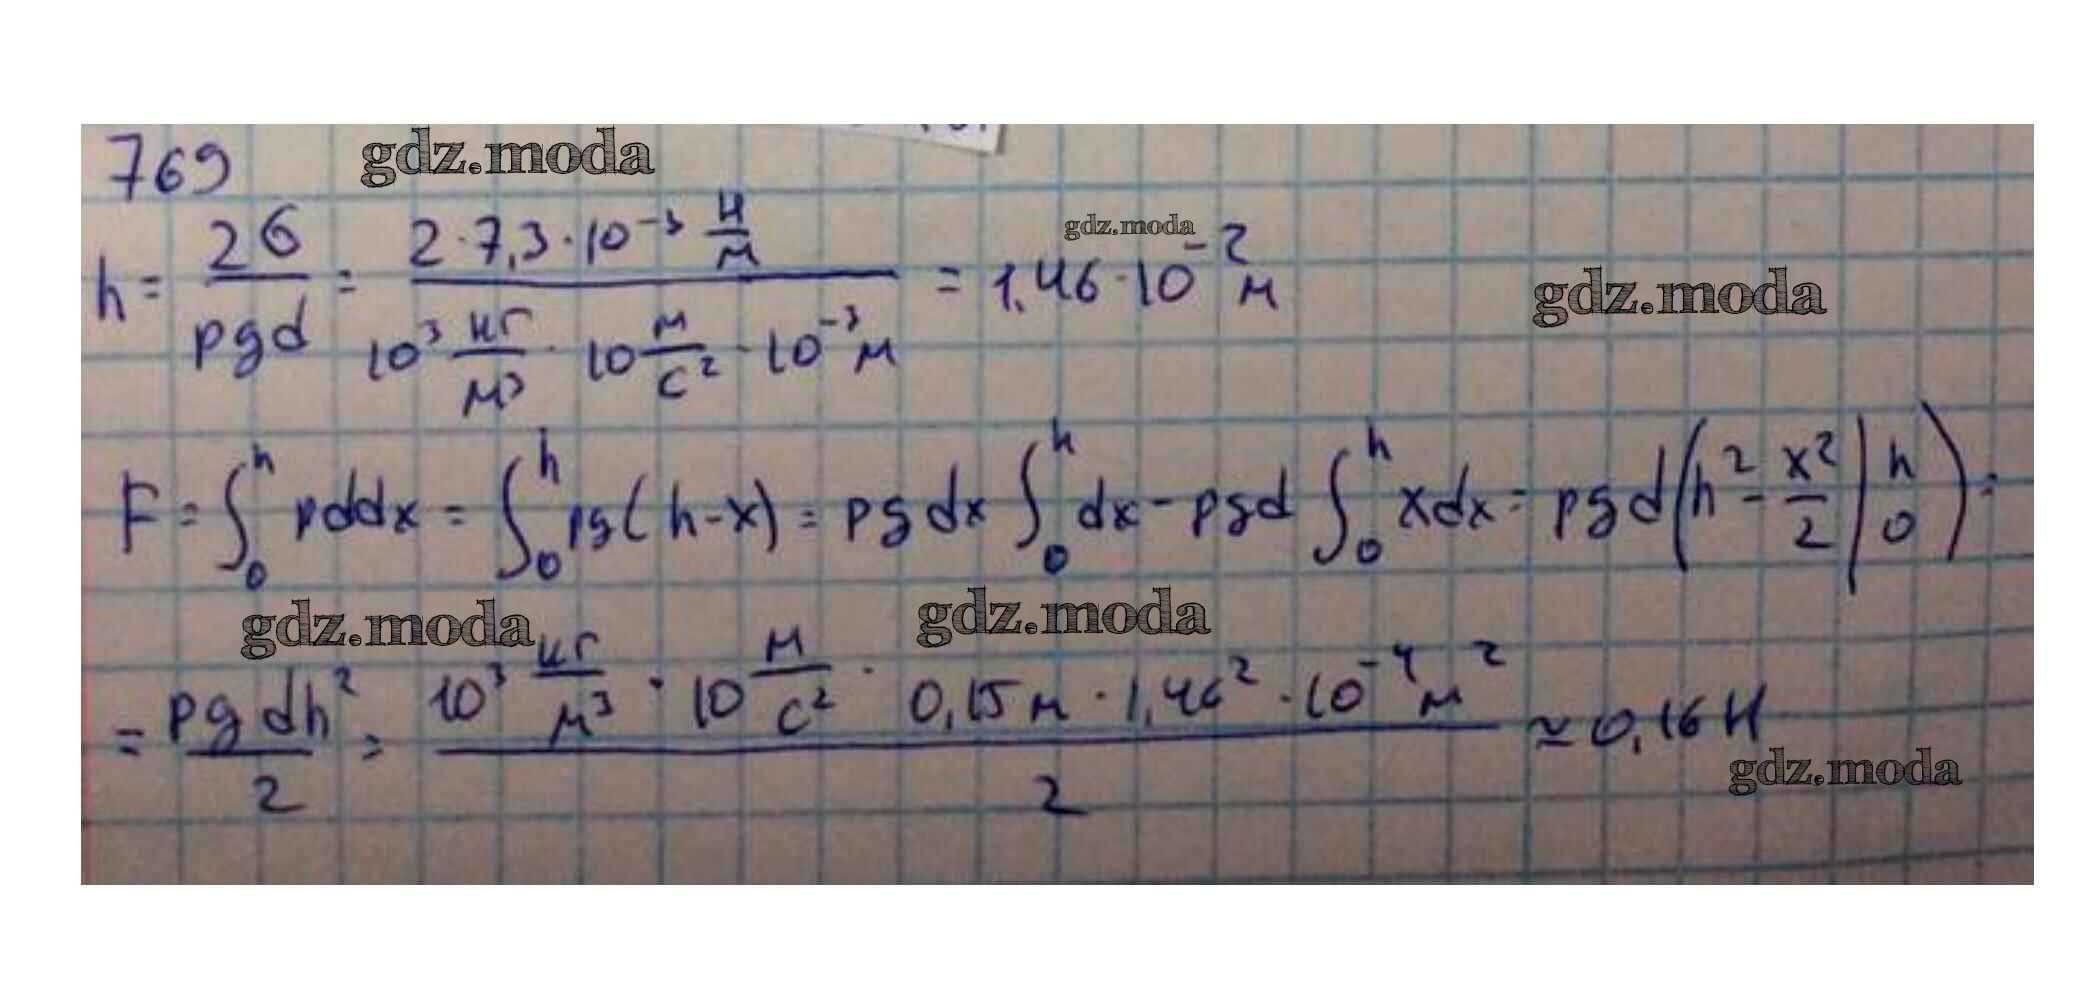 769 gdz.moda
h = 2б/ρgd = 2·7,3·10⁻³ Н/м / 10³ кг/м³ · 10 м/с² · 10⁻³ м = 1,46·10⁻² м
gdz.moda
gdz.moda
F = ∫₀ʰ pddx = ∫₀ʰ ρg(h-x) = ρgdx ∫₀ʰ dx - ρgd ∫₀ʰ xdx = ρgd(h² - x²/2 |ʰ₀) =
gdz.moda gdz.moda
= ρgdh²/2 = 10³ кг/м³ · 10 м/с² · 0,15м · 1,46² · 10⁻⁴ м² / 2 ≈ 0,16 Н
gdz.moda